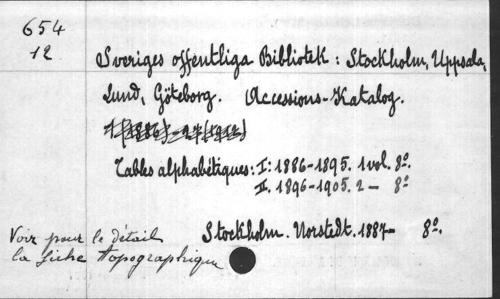 654
12
Sveriges offentliga Bibliotek : Stockholm, Uppsala,
Lund, Göteborg. Accessions-Katalog.
Tables alphabétiques : I : 1886-1895. 1 vol. 8º.
II. 1896-1905. 2 — 8º
Stockholm. Norstedt. 1887- 8º.
Voir pour le détail
la fiche topographique